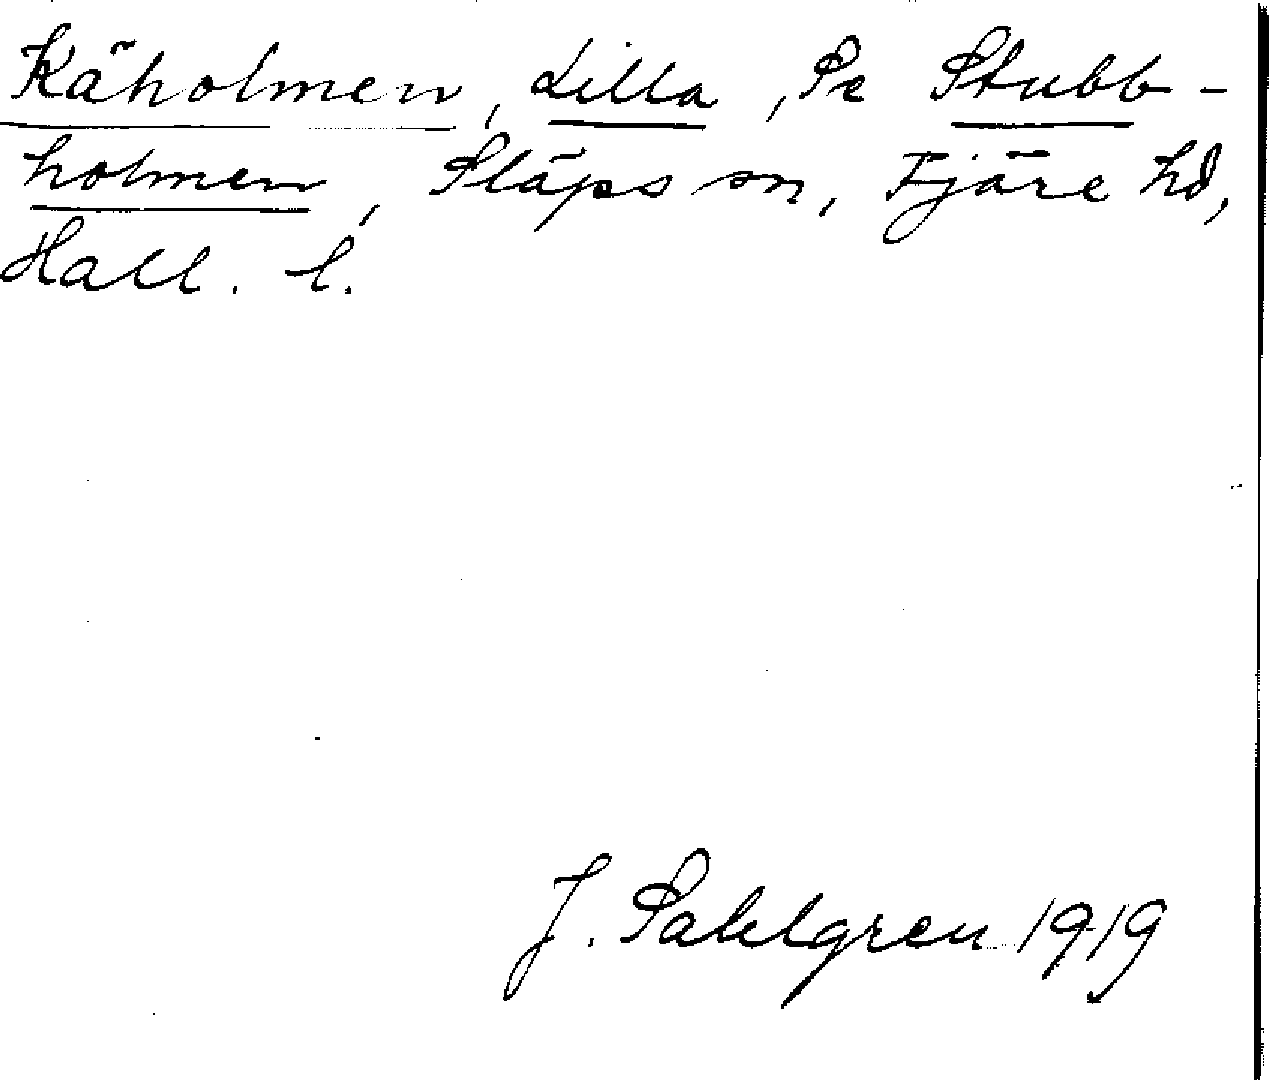 Käholmen, Lilla, Se Stubb-
holmen, Släps sn, Fjäre hd,
Hall. l.
J. Sahlgren 1919